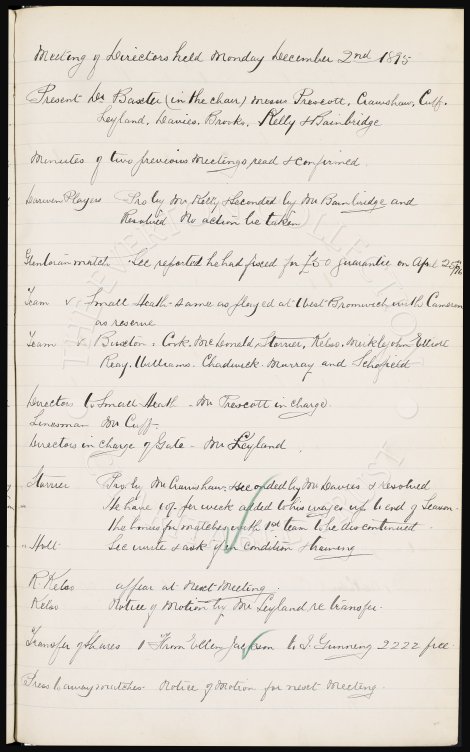 Meeting of Directors held Monday December 2nd 1895
Present Dr Baxter (in the chair) Messrs Prescott, Crawshaw, Cuff.
Leyland, Davies, Brooks, Kelly & Bainbridge
Minutes of two previous Meetings read & confirmed.
Darwen Players Pro by Mr Kelly & Seconded by Mr Bainbridge and
Resolved No action be taken
Glentoran match - Sec reported he had fixed for £50 guarantee on Apl
Team v. Small Heath - same as played at West Bromwich with Cameron
as reserve
Team v Buxton: Cork. McDonald, Storrier, Kelso. Meiklejohn Elliott
Reay. Williams. Chadwick. Murray and Schofield
Directors to Small Heath - Mr Prescott in charge.
Linesman Mr Cuff.
Directors in charge of Gate - Mr Leyland.
Storrier Pro by Mr Crawshaw, seconded by Mr Davies & resolved
He have per week added to his wages up to end of Season.
the bonus for matches with 1st team to be discontinued
Holt Sec write & ask condition & training
R Kelso appear at next Meeting
Kelso Notice of Motion by Mr Leyland re transfer.
Transfer of Shares 1 From Ellen Jackson to J. Gunning 2222 free.
Press away matches. Notice of Motion for next Meeting.